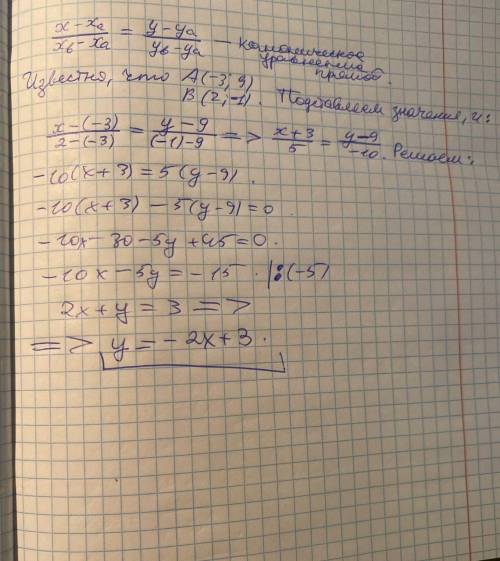 x - xa / xb - xa = y - ya / yb - ya — каноническое
уравнение
прямой.
Известно, что A(-3; 9)
B(2; -1). Подставляем значения, и:
x-(-3) / 2-(-3) = y-9 / (-1)-9 => x+3 / 5 = y-9 / -10. Решаем:
-10(x+3) = 5(y-9).
-10(x+3) - 5(y-9) = 0.
-10x - 30 - 5y + 45 = 0.
-10x - 5y = -15. |:(-5)
2x + y = 3 =>
=> y = -2x + 3.